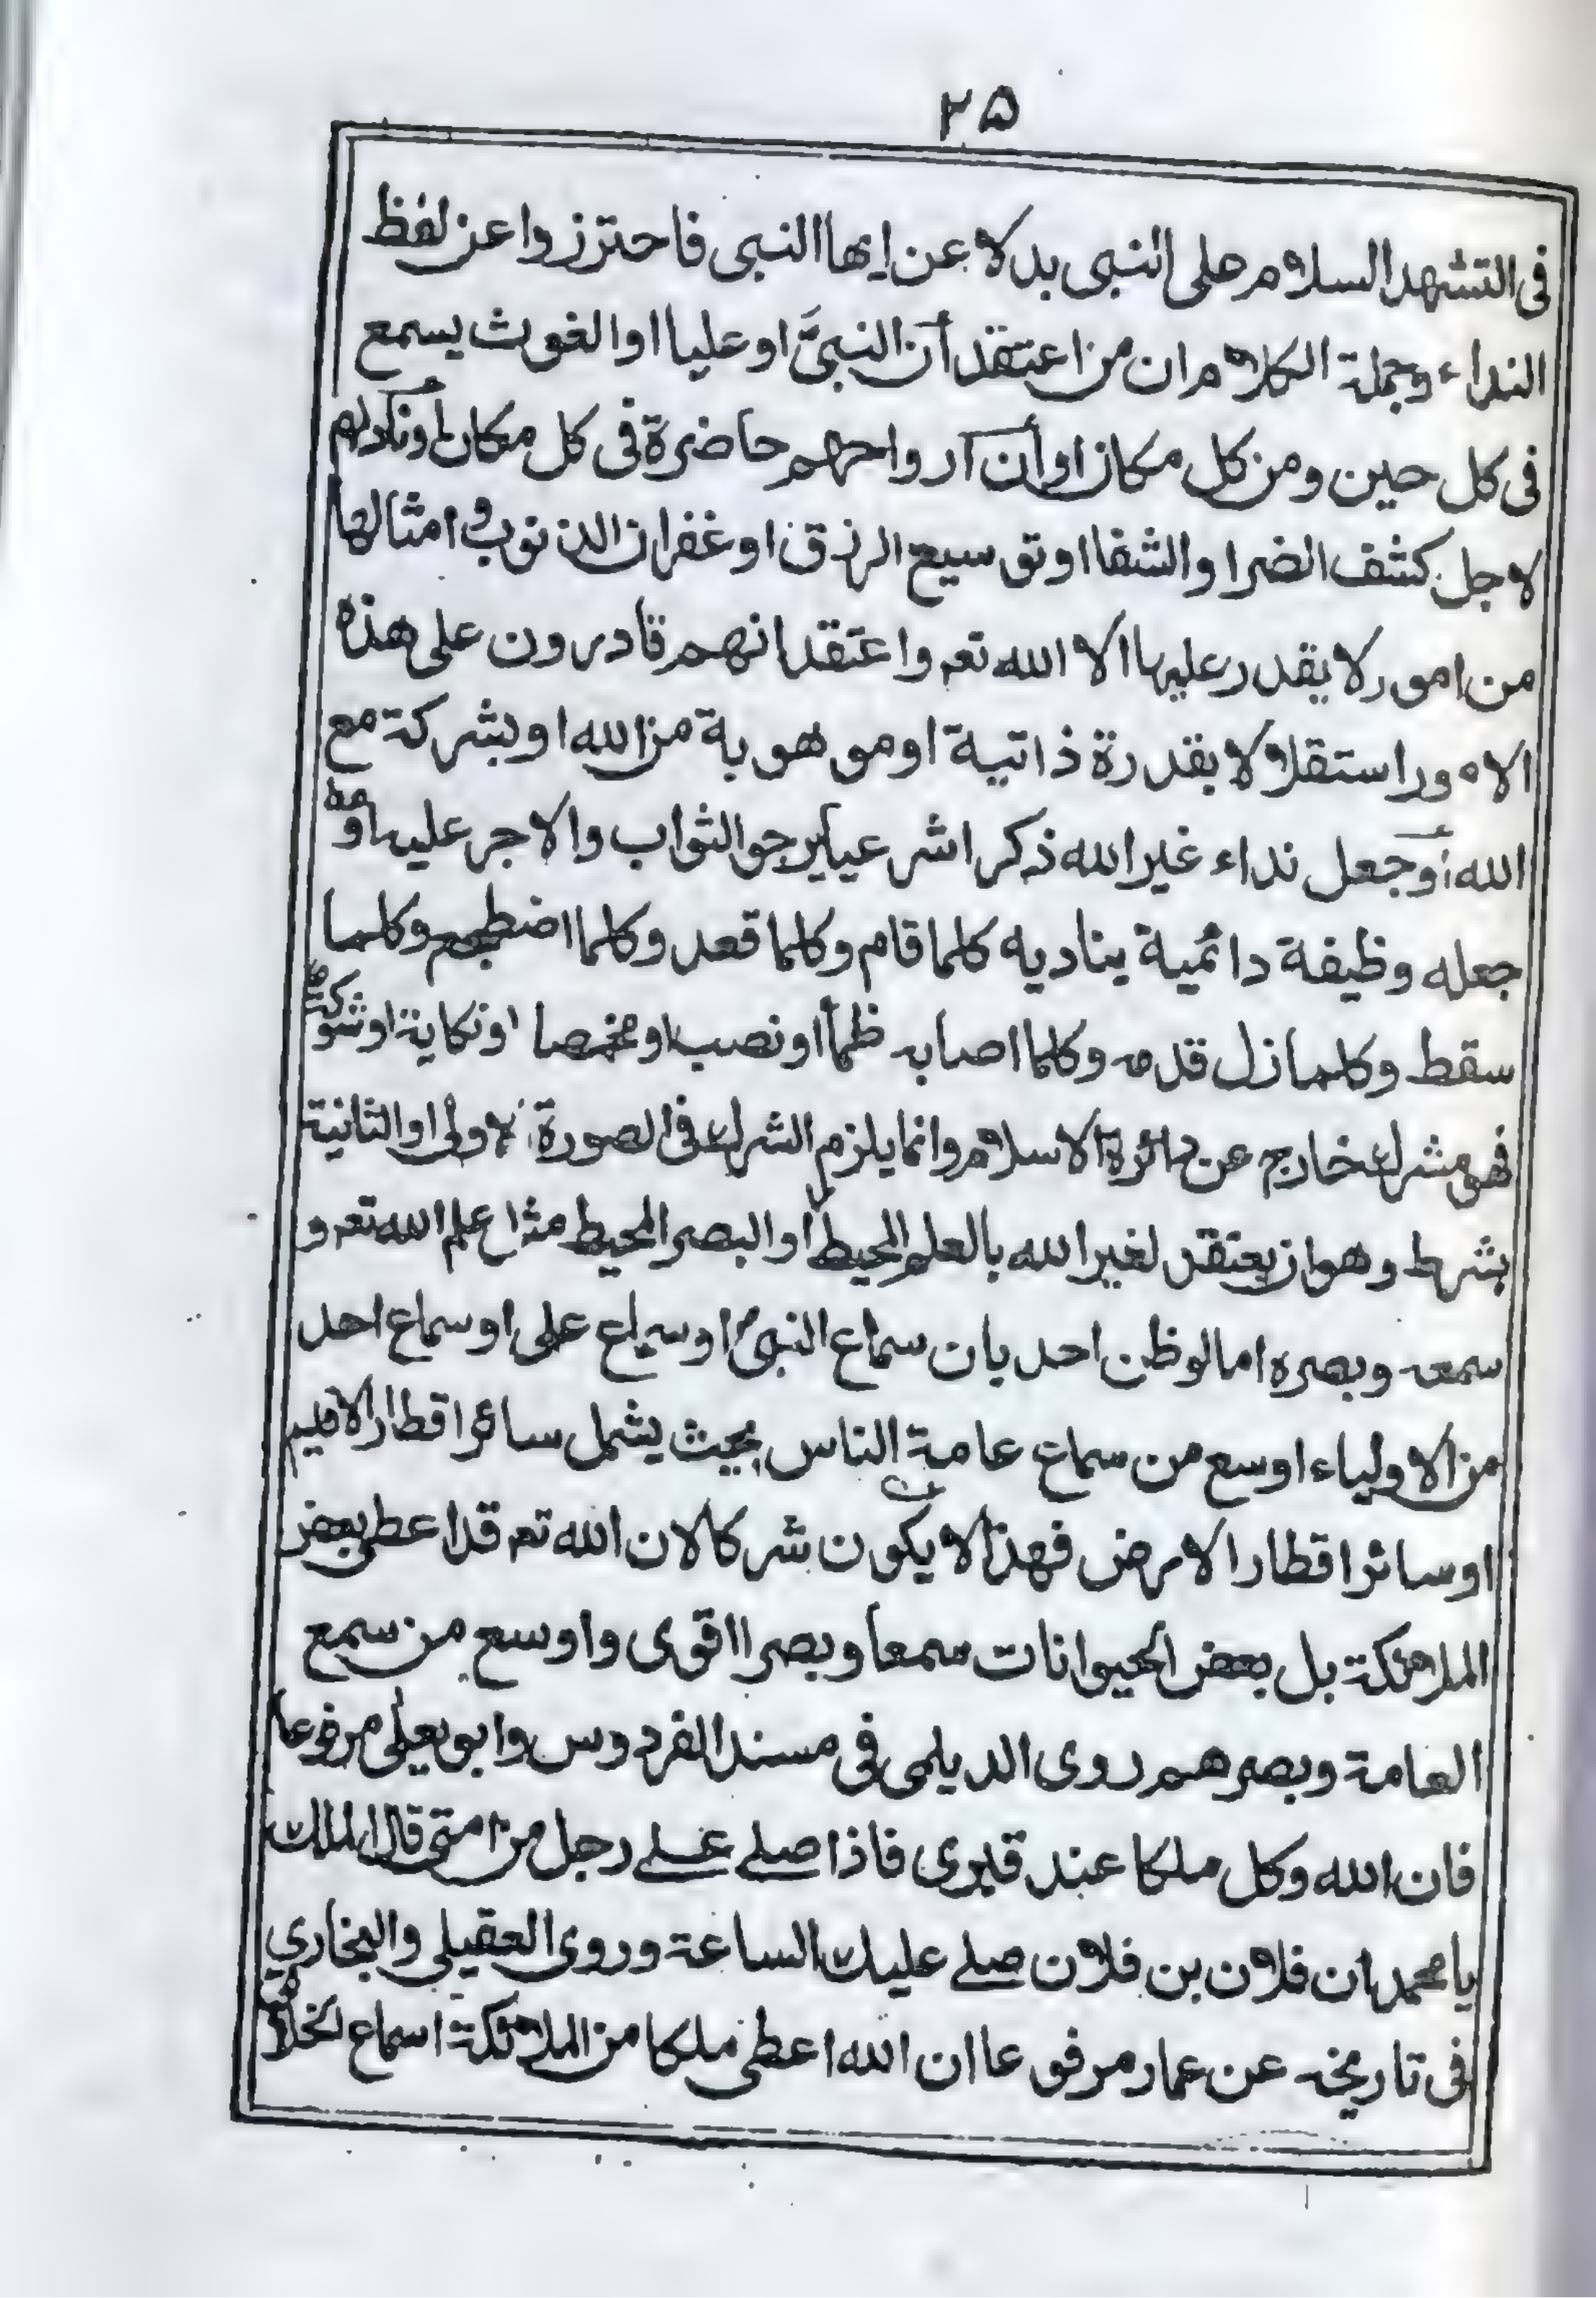 ۲۵
فى التشهد السلام على النبى بدلا عن ايها النبى فاحترزوا عن لفظ
النداء وجملة الكلام ان من اعتقد أن النبىَّ او عليا او الغوث يسمع
فى كل حين ومن كل مكان او أن ارواحهم حاضرة فى كل مكان
لاجل كشف الضر او الشفا او توسيع الرزق او غفران الذنوب و امثالها
من امور لا يقدر عليها الا الله تعہ واعتقد انهم قادرون على هذه
الامور استقلالا بقدرة ذاتية او موهوبة من الله او بشركة مع
الله أوجعل نداء غير الله ذكرا شرعيا يرجو الثواب والاجر عليہ او
جعله وظيفة دائمية يناديه كلما قام وكلما قعد وكلما اضطجع وكلما
سقط وكلما زل قدمہ وكلما اصابہ ظمأ او نصب او مخمصا او نكاية او شوكة
فهو مشرك خارج عن دائرة الاسلام وانما يلزم الشرك فى الصورة الاولى او الثانية
بشرط وهو ان يعتقد لغير الله بالعلم المحيط او البصر المحيط مثل علم الله تعہ و
سمعہ وبصره اما لو ظن احد بان سماع النبىؐ او سماع على او سماع احد
من الاولياء اوسع من سماع عامة الناس بحيث يشمل سائر اقطار الاقليم
او سائر اقطار الارض فهذا لا يكون شركا لان الله تعہ قد اعطى بعض
الملائكة بل بعض الحيوانات سمعا وبصرا اقوى واوسع من سمع
العامة وبصرهم روى الديلمى فى مسند الفردوس وابو يعلى مرفوعا
فان الله وكل ملكا عند قبرى فاذا صلے علے رجل من امتى قال الملك
يا محمد ان فلان بن فلان صلے عليك الساعة وروى العقيلى والبخارى
فى تاريخہ عن عمار مرفوعا ان الله اعطى ملكا من الملائكة اسماع الخلائق